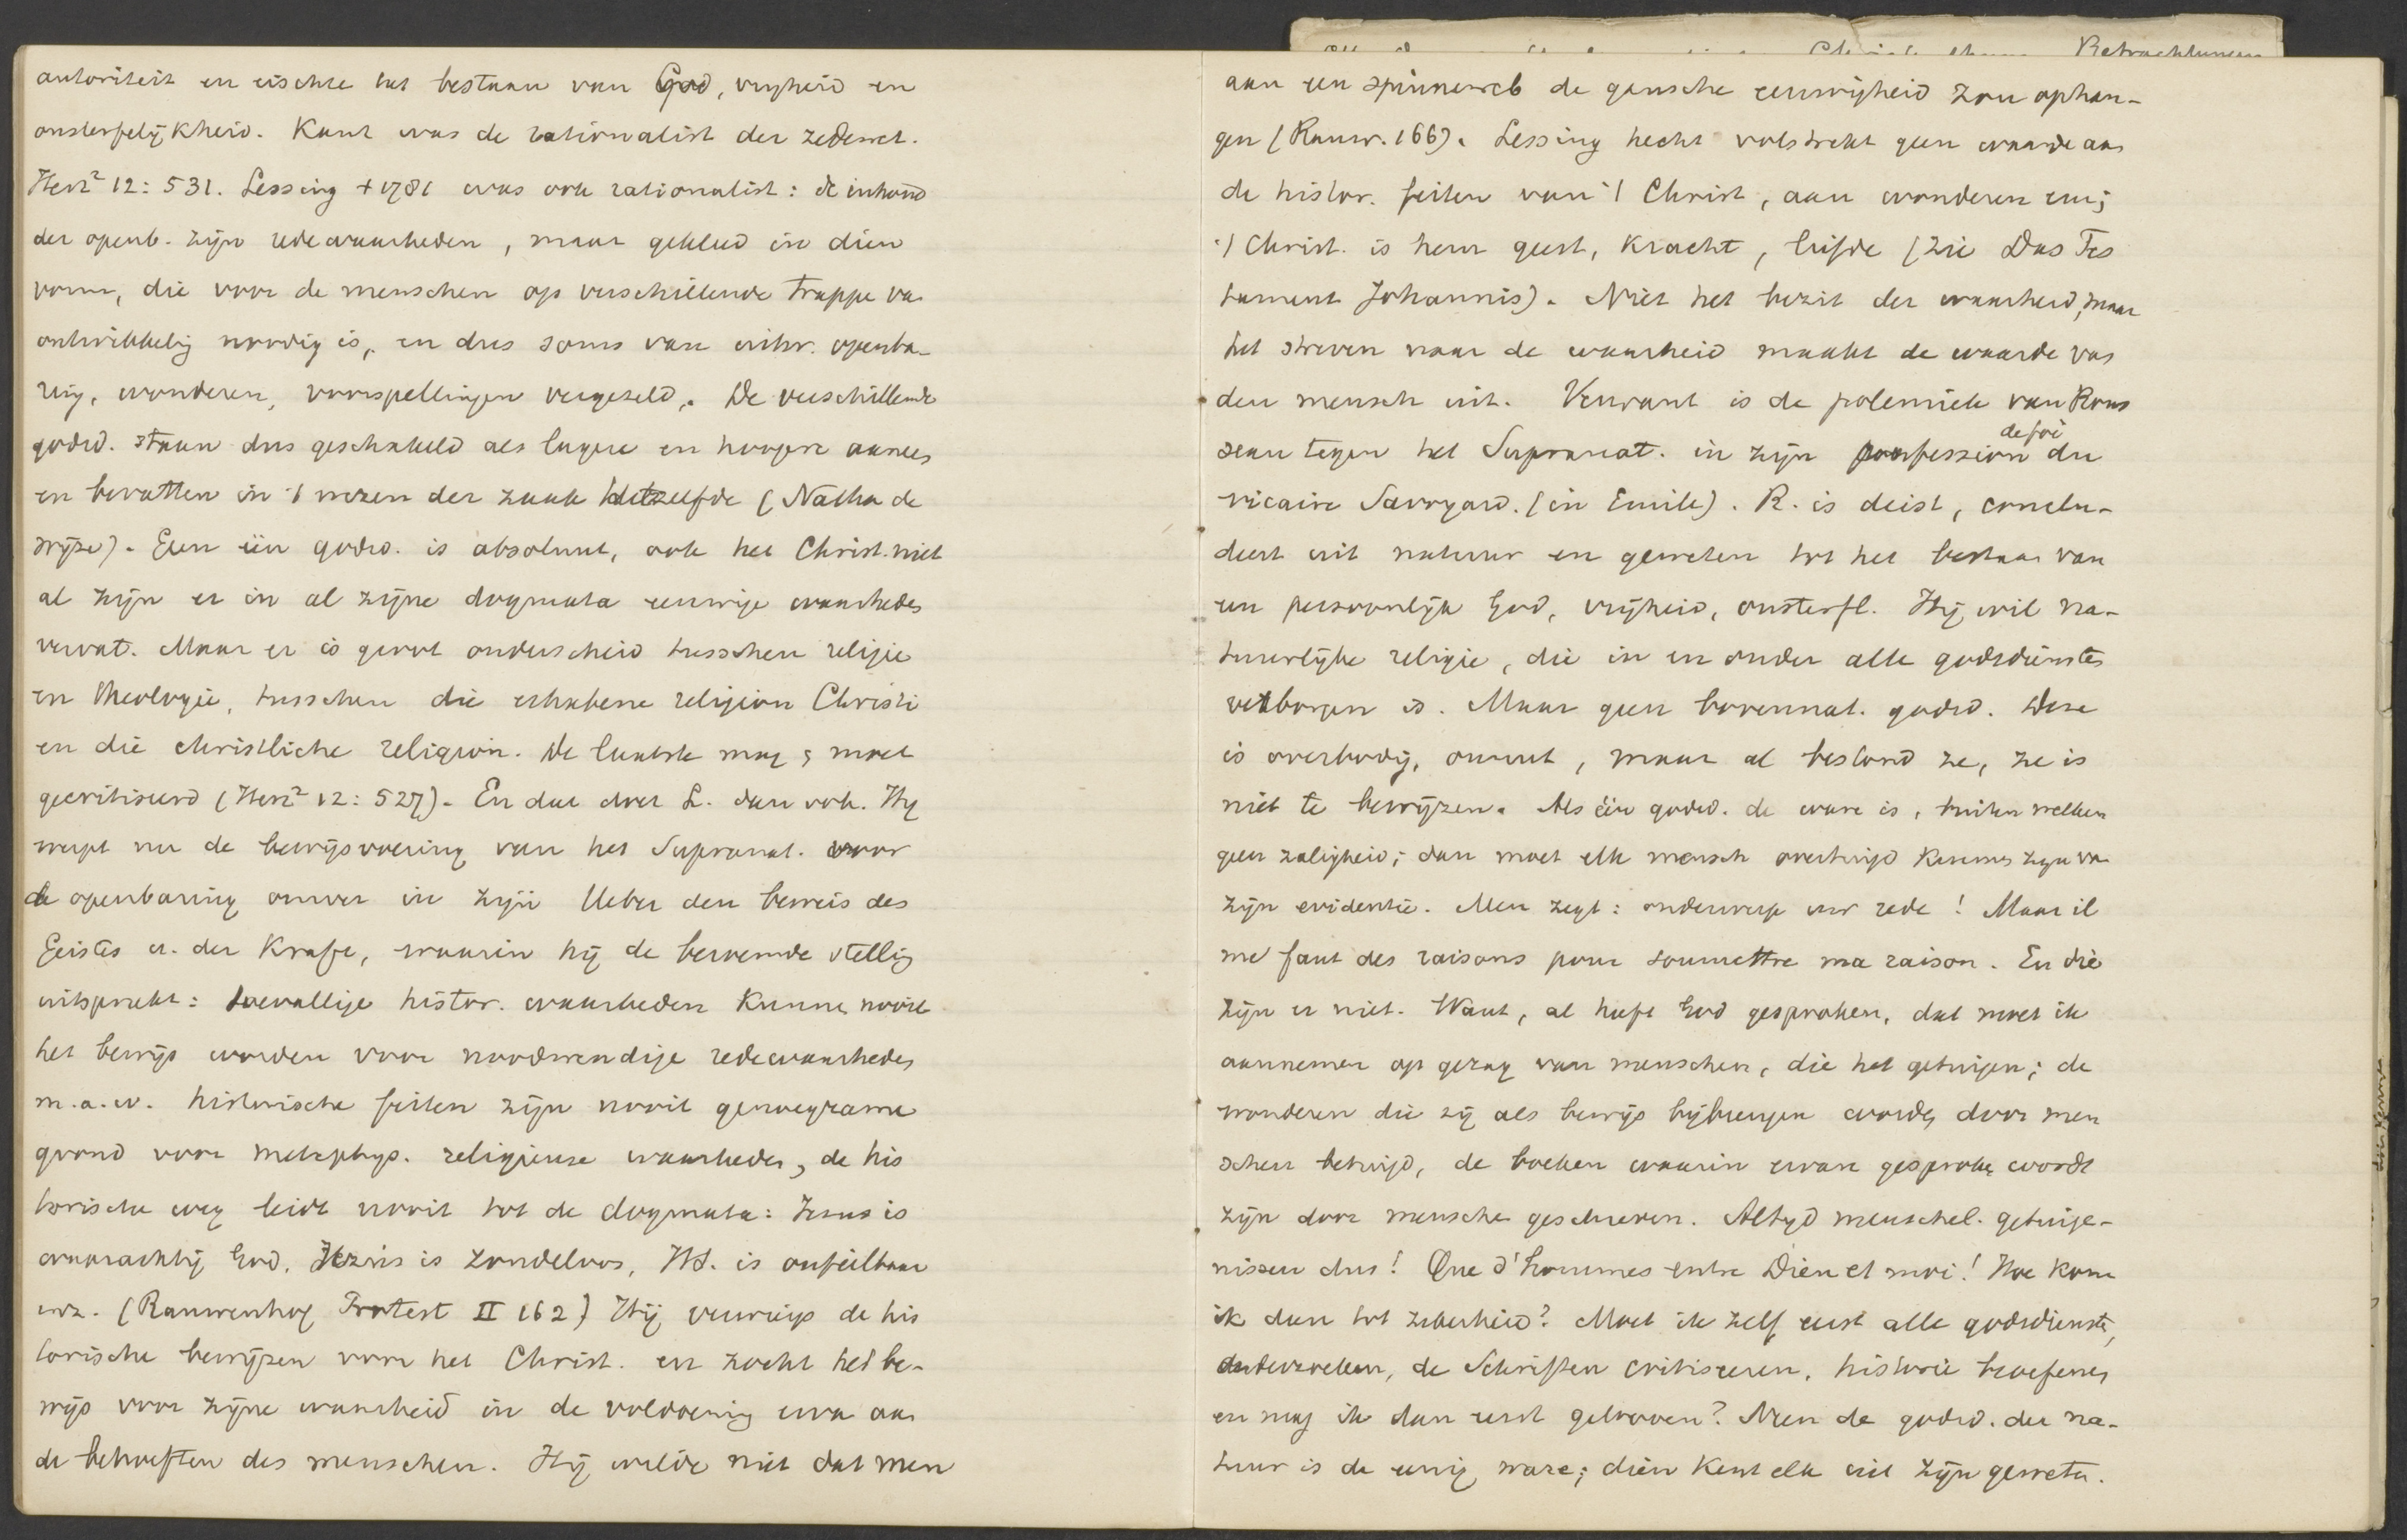 autoriteit en eischte het bestaan van God, vrijheid en
onsterfelijkheid. Kant was de rationalist der zedewet.
Herz² 12: 531. Lessing + 1781 was ook rationalist: de inhoud
der openb. zijn redewaarheden, maar gekleed in dien
vorm, die voor de menschen op verschillende trappe va
ontwikkelig noodig is, en dus soms van uitw. openba-
ring, wonderen, voorspellingen vergezeld. De verschillende
godsd. staan dus geschakeld als lagere en hoogere aaneen
en bevatten in 't wezen der zaak hetzelfde (Nathan de
wijze). Geen één godsd. is absoluut, ook het Christ. niet
al zijn er in al zijne dogmata eeuwige waarheden
vervat. Maar er is groot onderscheid tusschen religie
en theologie, tusschen die erhabene religion Christi
en die christliche religion. De laatste mag & moet
gecritiseerd (Herz² 12: 527). En dat doet L. dan ook. Hij
werpt nu de bewijsvoering van het Supranat. voor
de openbaring omver in zijn Ueber den beweis des
Geistes u. der Kraft, waarin hij de beroemde stellig
uitspreekt: toevallige histor. waarheden kunnen nooit
het bewijs worden voor noodwendige redewaarheden
m.a.w. historische feiten zijn nooit genoegzame
grond voor metaphys. religieuse waarheden, de his
torische weg leidt nooit tot de dogmata: Jezus is
waarachtig God, Jezus is zondeloos, HS. is onfeilbaar
enz. (Rauwenhof Protest II 162) Hij verwierp de his
torische bewijzen voor het Christ. en zocht het be-
wijs voor zijne waarheid in de voldoening ervan aan
de behoeften des menschen. Hij wilde niet dat men
Betrachtungen
aan een spinneweb de gansche eeuwigheid zou ophan-
gen (Rauw. 166). Lessing hecht volstrekt geen waarde aan
de histor. feiten van 't Christ, aan wonderen enz;
't Christ. is hem geest, kracht, liefde (zie Das Tes
tament Johannis). Niet het bezit der waarheid, maar
het streven naar de waarheid maakt de waarde van
den mensch uit. Verwant is de polemiek van Rous
seau tegen het Supranat. in zijn profession de foi du
vicaire Savoyard. (in Emile). R. is deist, conclu-
deert uit natuur en geweten tot het bestaan van
een persoonlijk God, vrijheid, onsterfl. Hij wil na-
tuurlijke religie, die in en onder alle godsdiensten
verborgen is. Maar geen bovennat. godsd. Deze
is overbodig, onnut, maar al bestond ze, ze is
niet te bewijzen. Als één godsd. de ware is, buiten welken
geen zaligheid; dan moet elk mensch overtuigd kunnen zijn va
zijn evidentie. Men zegt: onderwerp uw rede! Maar il
me faut des raisons pour soumettre ma raison. En die
zijn er niet. Want, al heeft God gesproken, dat moet ik
aannemen op gezag van menschen, die het getuigen; de
wonderen die zij als bewijs bijbrengen worden door men
schen betuigd, de boeken waarin ervan gesproken wordt
zijn door menschen geschreven. Altyd menschel. getuige-
nissen dus! Que d'hommes entre Dieu et moi! Hoe kom
ik dan tot zekerheid? Moet ik zelf eerst alle godsdiensten
onderzoeken, de Schriften critiseeren, historie beoefenen
en mag ik dan eerst gelooven? Neen de godsd. der na-
tuur is de eenig ware; dien kent elk uit zijn geweten.